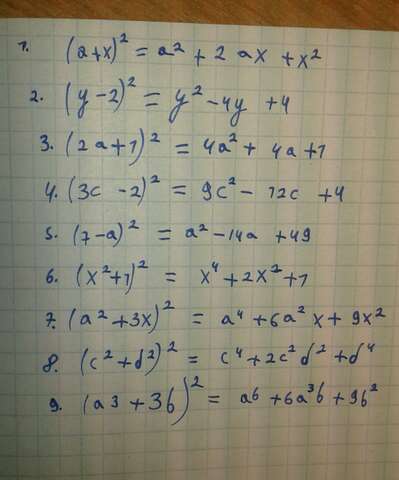 1. (a+x)² = a² + 2ax + x²
2. (y-2)² = y² - 4y + 4
3. (2a+1)² = 4a² + 4a + 1
4. (3c - 2)² = 9c² - 12c + 4
5. (7-a)² = a² - 14a + 49
6. (x²+1)² = x⁴ + 2x² + 1
7. (a² + 3x)² = a⁴ + 6a²x + 9x²
8. (c² + d²)² = c⁴ + 2c²d² + d⁴
9. (a3 + 3b)² = a6 + 6a³b + 9b²